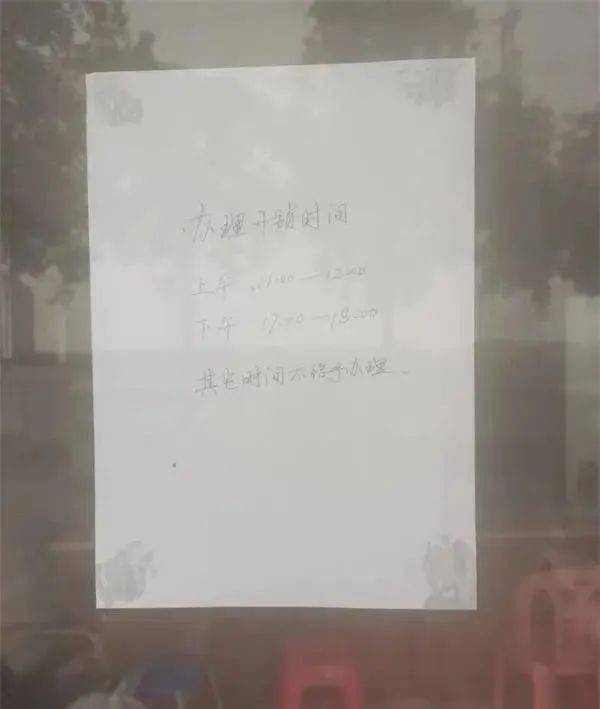 办理开锁时间
上午 11:00—12:00
下午 17:00—18:00
其它时间不给予办理.